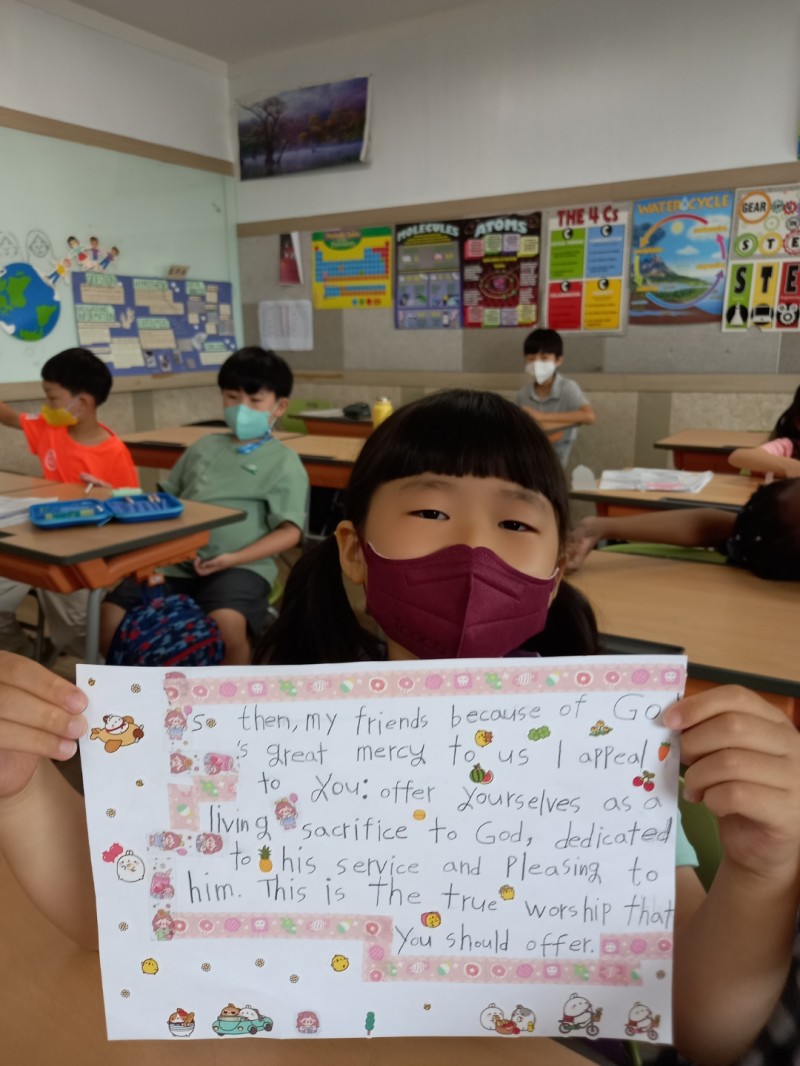 MOLECULES
ATOMS
THE 4 Cs
WATER CYCLE
GEAR
STE
So then, my friends because of Go
's great mercy to us I appeal
to you: offer yourselves as a
living sacrifice to God, dedicated
to his service and Pleasing to
him. This is the true worship that
you should offer.